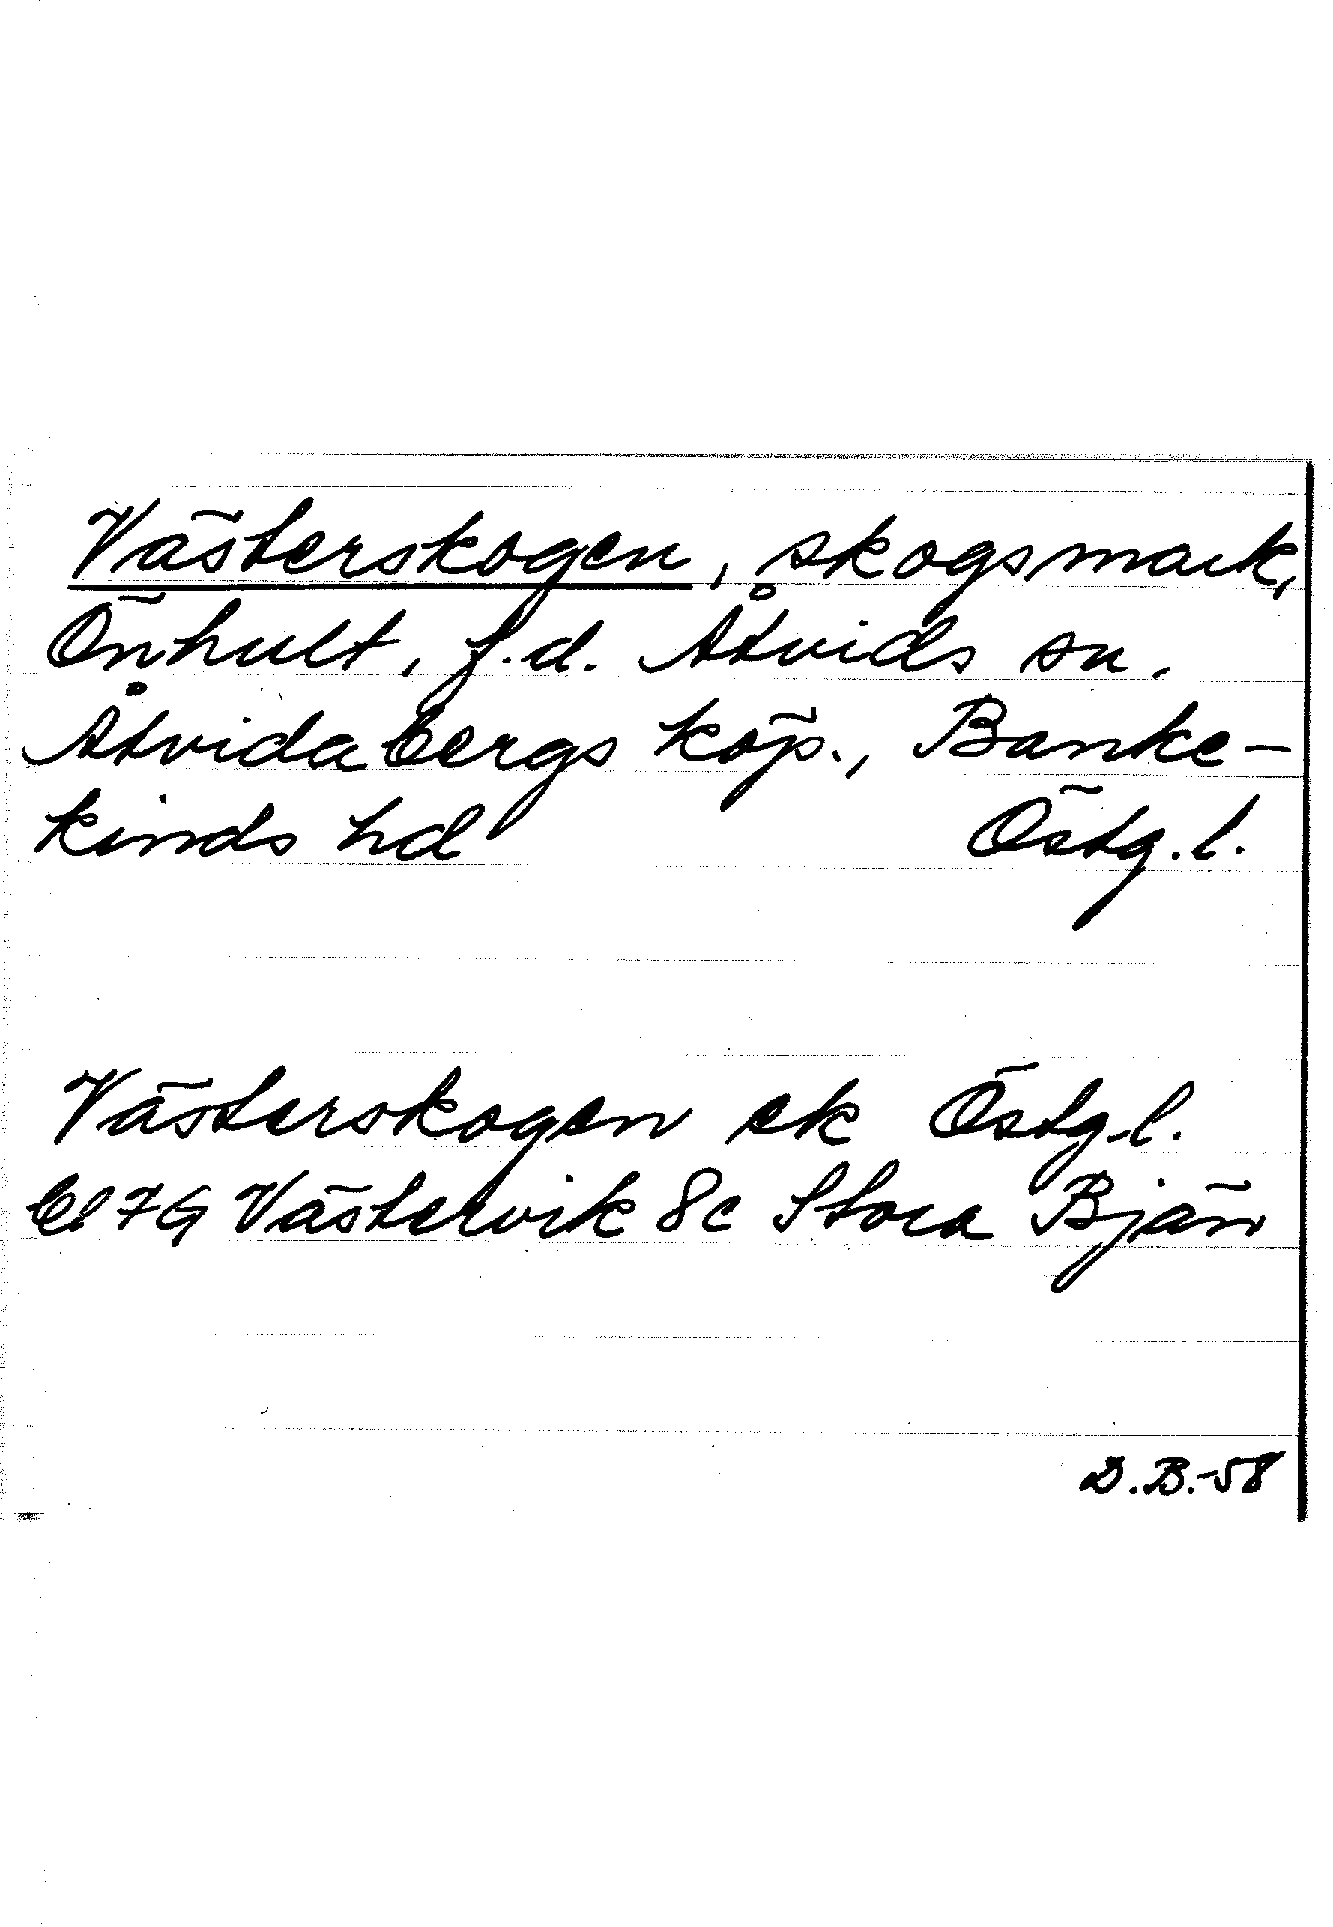 Västerskogen, skogsmark,
Önhult, f.d. Åtvids sn.
Åtvidabergs köp., Banke-
kinds hd Östg.l.
Västerskogen ek Östg.l.
bl 7G Västervik 8c Stora Bjän
D.B.-58